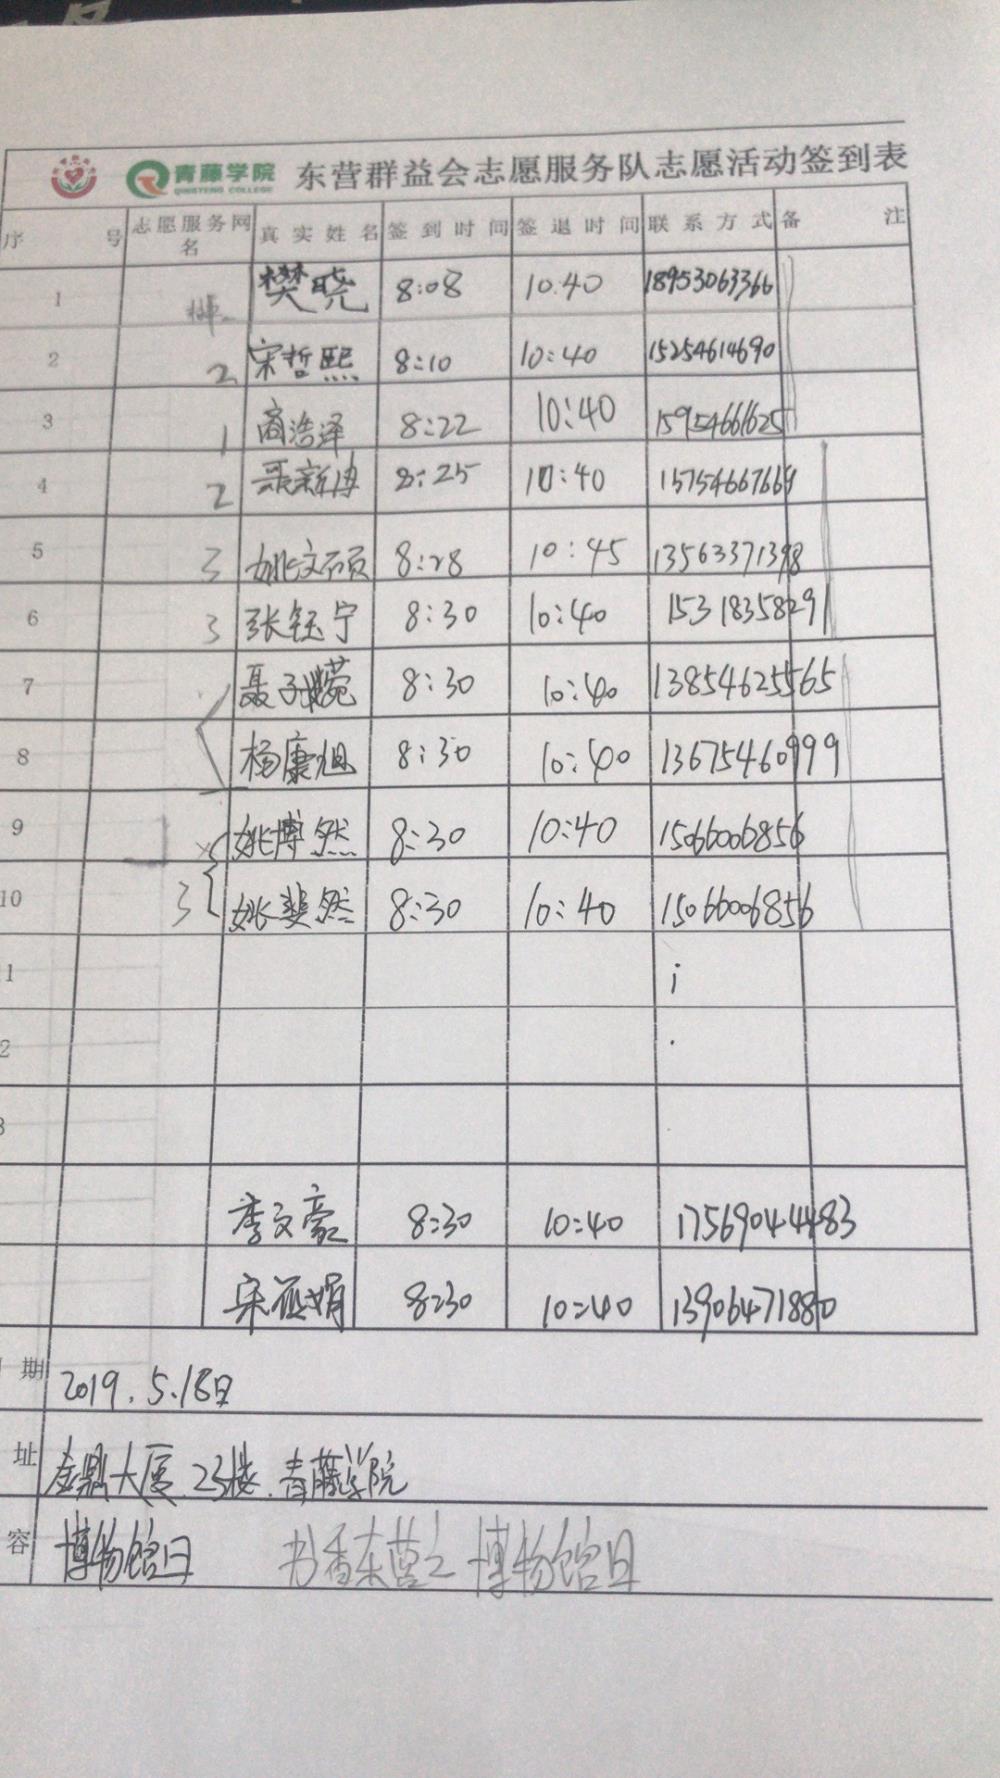 青藤学院 QINGTENG COLLEGE 东营群益会志愿服务队志愿活动签到表
序号 志愿服务网名 真实姓名 签到时间 签退时间 联系方式 备注
1 樊晓 8:08 10:40 18953063366
2 2 宋哲熙 8:10 10:40 15254614690
3 1 商浩泽 8:22 10:40 15954661625
4 2 新博 8:25 10:40 15754667669
5 3 姚文硕 8:28 10:45 13563371398
6 3 张钰宁 8:30 10:40 15318358291
7 聂子 8:30 10:40 13854625565
8 杨康旭 8:30 10:40 13675460999
9 姚博然 8:30 10:40 15066006856
10 3 姚斐然 8:30 10:40 15066006856
1
2
3
李文豪 8:30 10:40 17569044483
宋 娟 8:30 10:40 13906471880
期 2019.5.18日
址 金鼎大厦.23楼.青藤学院
容 博物馆日 书香东营之博物馆日